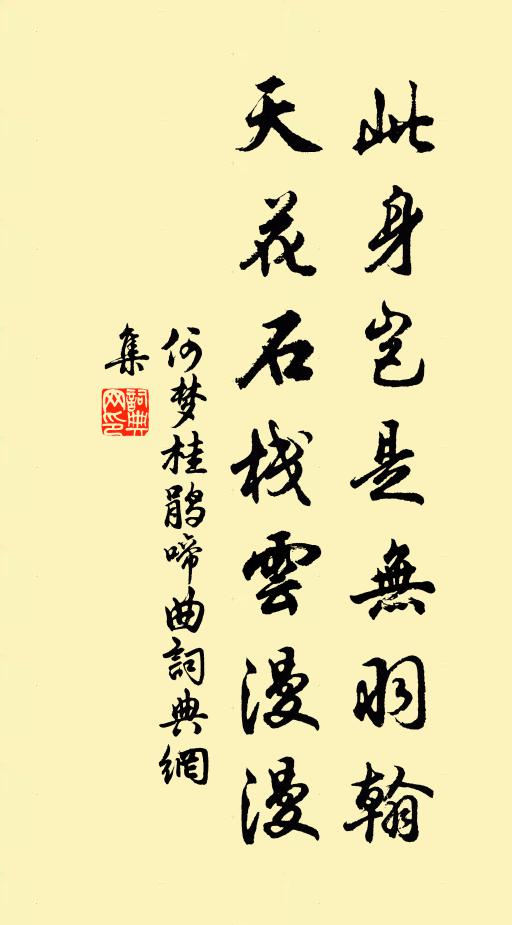 此身岂是無羽翰
天花石栈雲漫漫
何梦桂鹃啼曲詞典網
集
詞典
网印